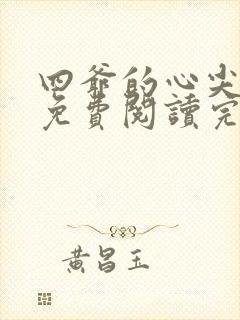 四爺的心尖
免費閱讀完
黃昌玉